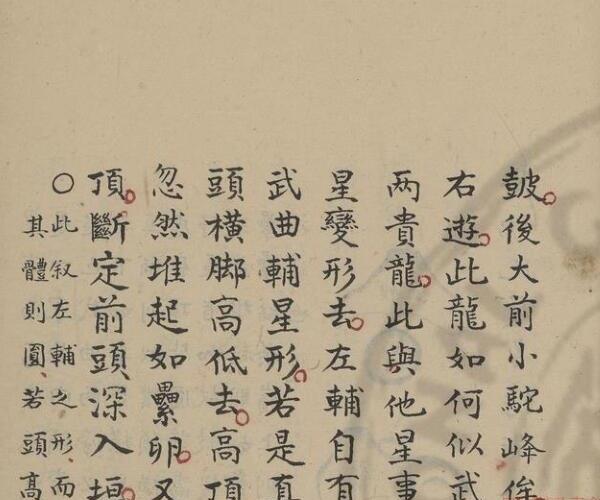 皷後大前小駝峰侔
右遊此龍如何似武
两貴龍此與他星事
星變形去左輔自有
武曲輔星形若是真
頭橫脚高低去高頂
忽然堆起如纍卵又
頂斷定前頭深入垣
○此叙左輔之形而
其體則圓若頭高